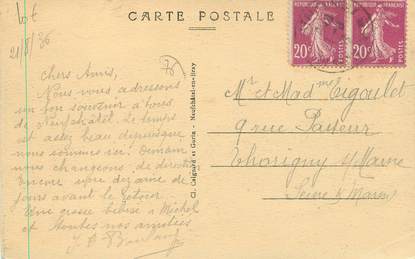 CARTE POSTALE
REPUBLIQUE FRANÇAISE
20c
POSTES
20c
POSTES
21/8/36
76
Chers Amis,
Nous vous adressons
un bon souvenir à tous
de Neufchâtel. Le temps
est assez beau depuis que
nous sommes ici. Demain
nous changeons de direction
Encore une dizaine de
jours avant le retour
Une grosse bise à Michel
et toutes nos amitiés
Cl. Caignard et Gorin - Neufchâtel-en-Bray
Mr et Mad me
9 rue Pasteur
Thorigny s/ Marne
Seine & Marne